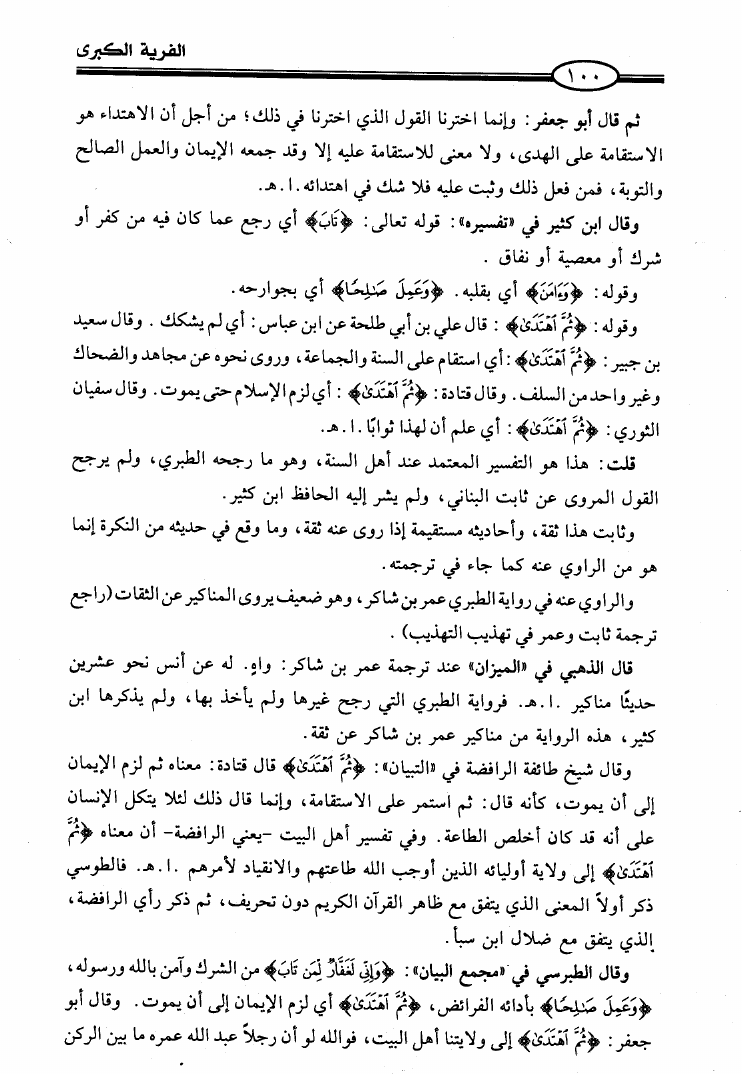 الفرية الكبرى
١٠٠
ثم قال أبو جعفر: وإنما اخترنا القول الذي اخترنا في ذلك؛ من أجل أن الاهتداء هو
الاستقامة على الهدى، ولا معنى للاستقامة عليه إلا وقد جمعه الإيمان والعمل الصالح
والتوبة، فمن فعل ذلك وثبت عليه فلا شك في اهتدائه.ا.هـ.
وقال ابن كثير في «تفسيره»: قوله تعالى: ﴿تَابَ﴾ أي رجع عما كان فيه من كفر أو
شرك أو معصية أو نفاق .
وقوله: ﴿وَءَامَنَ﴾ أي بقلبه. ﴿وَعَمِلَ صَـٰلِحًا﴾ أي بجوارحه.
وقوله: ﴿ثُمَّ ٱهْتَدَىٰ﴾ : قال علي بن أبي طلحة عن ابن عباس: أي لم يشكك . وقال سعيد
بن جبير: ﴿ثُمَّ ٱهْتَدَىٰ﴾ : أي استقام على السنة والجماعة، وروى نحوه عن مجاهد والضحاك
وغير واحد من السلف. وقال قتادة: ﴿ثُمَّ ٱهْتَدَىٰ﴾ : أي لزم الإسلام حتى يموت. وقال سفيان
الثوري: ﴿ثُمَّ ٱهْتَدَىٰ﴾ : أي علم أن لهذا ثوابًا.ا.هـ.
قلت: هذا هو التفسير المعتمد عند أهل السنة، وهو ما رجحه الطبري، ولم يرجح
القول المروى عن ثابت البناني، ولم يشر إليه الحافظ ابن كثير.
وثابت هذا ثقة، وأحاديثه مستقيمة إذا روى عنه ثقة، وما وقع في حديثه من النكرة إنما
هو من الراوي عنه كما جاء في ترجمته.
والراوي عنه في رواية الطبري عمر بن شاكر، وهو ضعيف يروى المناكير عن الثقات (راجع
ترجمة ثابت وعمر في تهذيب التهذيب) .
قال الذهبي في «الميزان» عند ترجمة عمر بن شاكر: واهٍ. له عن أنس نحو عشرين
حديثًا مناكير .ا.هـ. فرواية الطبري التي رجح غيرها ولم يأخذ بها، ولم يذكرها ابن
كثير، هذه الرواية من مناكير عمر بن شاكر عن ثقة.
وقال شيخ طائفة الرافضة في «التبيان»: ﴿ثُمَّ ٱهْتَدَىٰ﴾ قال قتادة: معناه ثم لزم الإيمان
إلى أن يموت، كأنه قال: ثم استمر على الاستقامة، وإنما قال ذلك لئلا يتكل الإنسان
على أنه قد كان أخلص الطاعة. وفي تفسير أهل البيت -يعني الرافضة- أن معناه ﴿ثُمَّ
ٱهْتَدَىٰ﴾ إلى ولاية أوليائه الذين أوجب الله طاعتهم والانقياد لأمرهم .ا.هـ. فالطوسي
ذكر أولاً المعنى الذي يتفق مع ظاهر القرآن الكريم دون تحريف، ثم ذكر رأي الرافضة،
الذي يتفق مع ضلال ابن سبأ.
وقال الطبرسي في «مجمع البيان»: ﴿وَإِنِّي لَغَفَّارٌ لِّمَن تَابَ﴾ من الشرك وآمن بالله ورسوله،
﴿وَعَمِلَ صَـٰلِحًا﴾ بأدائه الفرائض، ﴿ثُمَّ ٱهْتَدَىٰ﴾ أي لزم الإيمان إلى أن يموت. وقال أبو
جعفر: ﴿ثُمَّ ٱهْتَدَىٰ﴾ إلى ولايتنا أهل البيت، فوالله لو أن رجلاً عبد الله عمره ما بين الركن